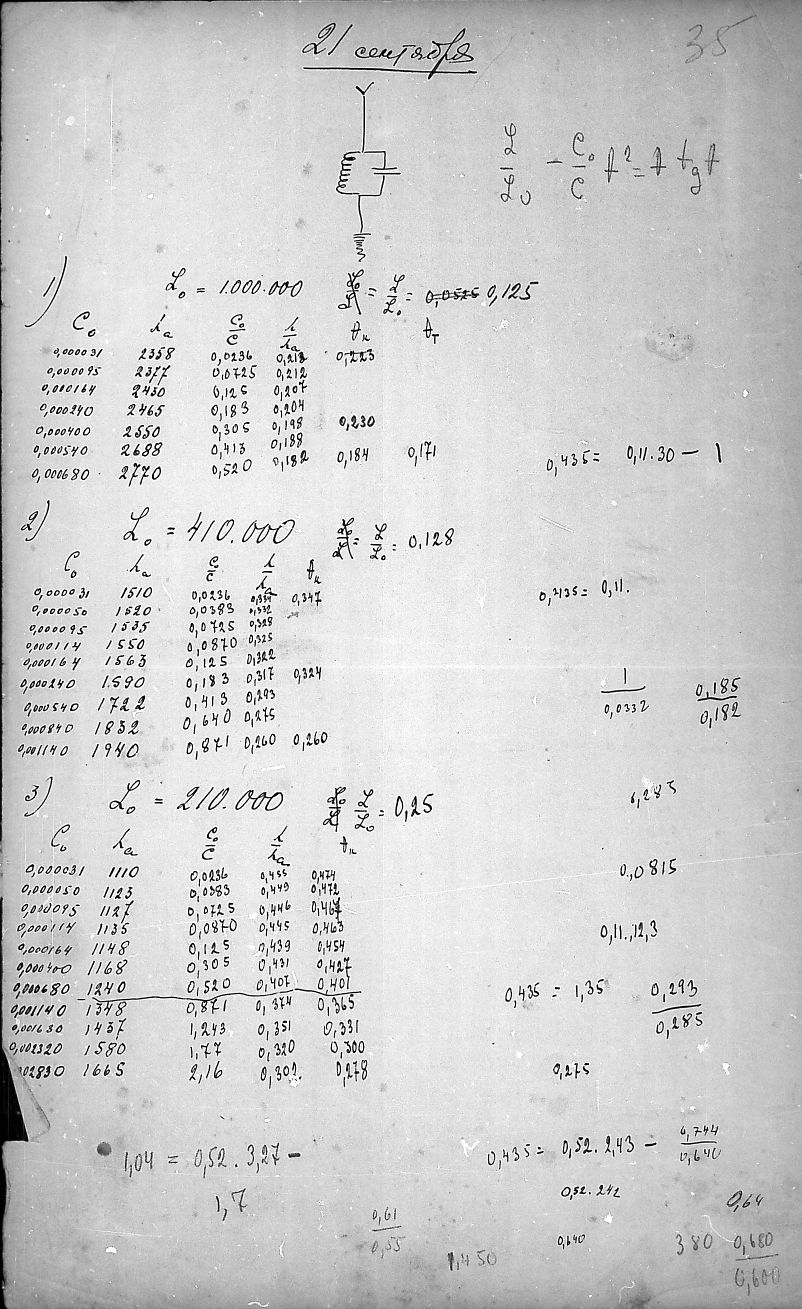 35
21 сентября
L/L₀ - C₀/C A² = A tg A
1) L₀ = 1.000.000 L/L₀ = 0,125
C₀ λₐ C₀/C λ/λₐ
0,000031 2358 0,0236 0,218 0,223
0,000095 2377 0,0725 0,212
0,000164 2430 0,125 0,207
0,000240 2465 0,183 0,204
0,000400 2550 0,305 0,198 0,230
0,000540 2688 0,413 0,188
0,000680 2770 0,520 0,182 0,184 0,171
0,435 = 0,11.30 – 1
2) L₀ = 410.000 L/L₀ = 0,128
C₀ λₐ C₀/C λ/λₐ
0,000031 1510 0,0236 0,334 0,347
0,000050 1520 0,0383 0,332
0,000095 1535 0,0725 0,328
0,000114 1550 0,0870 0,325
0,000164 1563 0,125 0,322
0,000240 1590 0,183 0,317 0,324
0,000540 1722 0,413 0,293
0,000840 1832 0,640 0,275
0,001140 1940 0,871 0,260 0,260
0,435 = 0,11.
1/0,0332 0,185/0,182
3) L₀ = 210.000 L/L₀ = 0,25
6,283
C₀ λₐ C₀/C λ/λₐ
0,000031 1110 0,0236 0,455 0,474
0,000050 1123 0,0383 0,449 0,472
0,000095 1127 0,0725 0,446 0,467
0,000114 1135 0,0870 0,445 0,463
0,000164 1148 0,125 0,439 0,454
0,000400 1168 0,305 0,431 0,427
0,000680 1240 0,520 0,407 0,401
0,001140 1348 0,871 0,374 0,365
0,001630 1437 1,243 0,351 0,331
0,002320 1580 1,77 0,320 0,300
002830 1665 2,16 0,302 0,278
0,0815
0,11.12,3
0,435 = 1,35 0,293/0,285
0,275
1,04 = 0,52 . 3,27 –
1,7
0,435 = 0,52 . 2,43 – 0,744/0,640
0,52 . 242
0,64
0,61/0,55
1,450
0,640
380 0,680/0,600